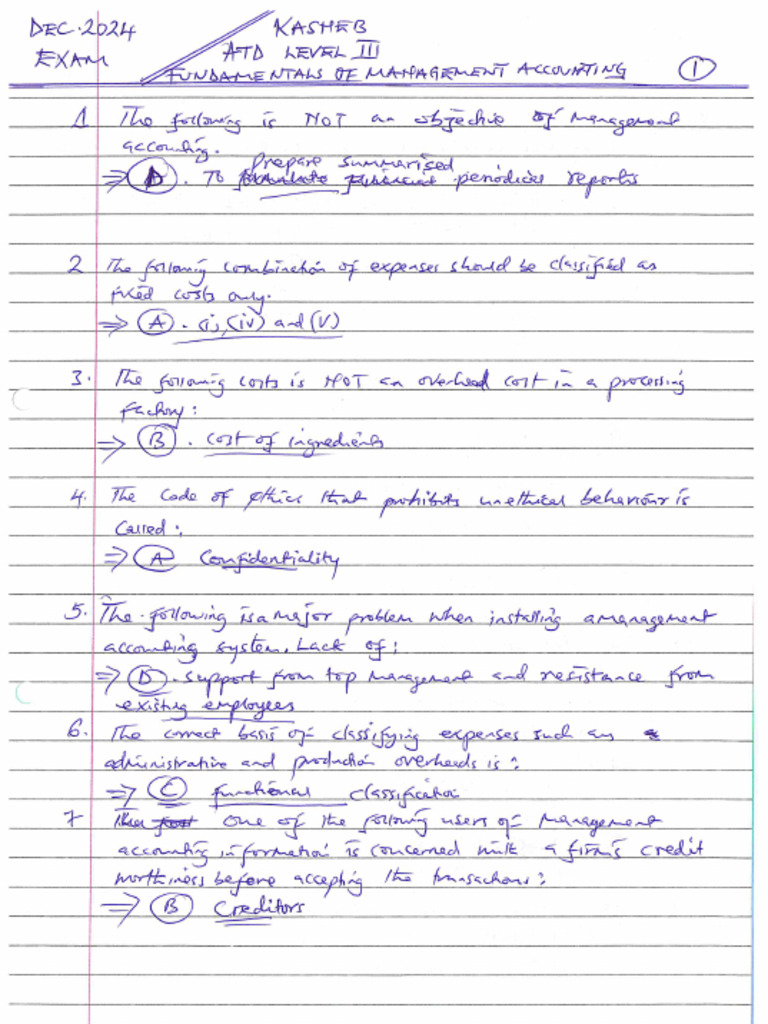 DEC. 2024
EXAM
KASNEB
ATD LEVEL III
FUNDAMENTALS OF MANAGEMENT ACCOUNTING
1
1 The following is NOT an objective of management
accounting.
Prepare summarised
⇒ D. To periodical reports
2 The following combination of expenses should be classified as
fixed costs only.
⇒ A. (i), (iv) and (V)
3. The following costs is NOT an overhead cost in a processing
factory:
⇒ B. cost of ingredients
4. The Code of ethics that prohibits unethical behaviour is
called:
⇒ A Confidentiality
5. The following is a major problem when installing a management
accounting system. Lack of:
⇒ D. Support from top management and resistance from
existing employees
6. The correct basis of classifying expenses such as
administrative and production overheads is:
⇒ C functional classification
7 One of the following users of management
accounting information is concerned with a firm's credit
worthiness before accepting the transactions:
⇒ B Creditors